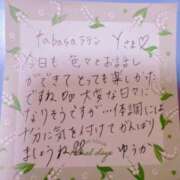 tabasaラテン Yさま♡
今日も色々とお話し
ができてとっても楽しかった
ですね 大変な日々に
なりそうですが…体調には
十分に気を付けてがんばり
ましょうね
days
ゆうか